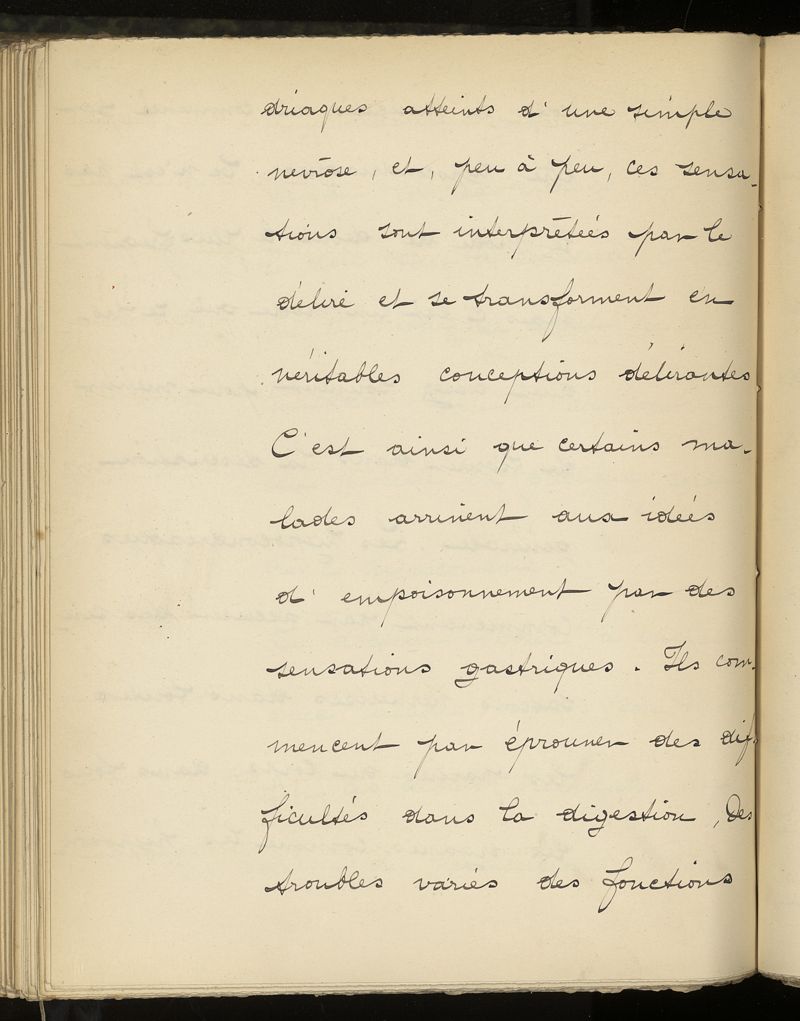 driaques atteints d'une simple
nevrose, et, peu à peu, ces sensa-
tions sont interprétées par le
délire et se transforment en
véritables conceptions délirantes
C'est ainsi que certains ma-
lades arrivent aux idées
d'empoisonnement par des
sensations gastriques. Ils com-
mencent par éprouver des dif
ficultés dans la digestion, Des
troubles variés des fonctions